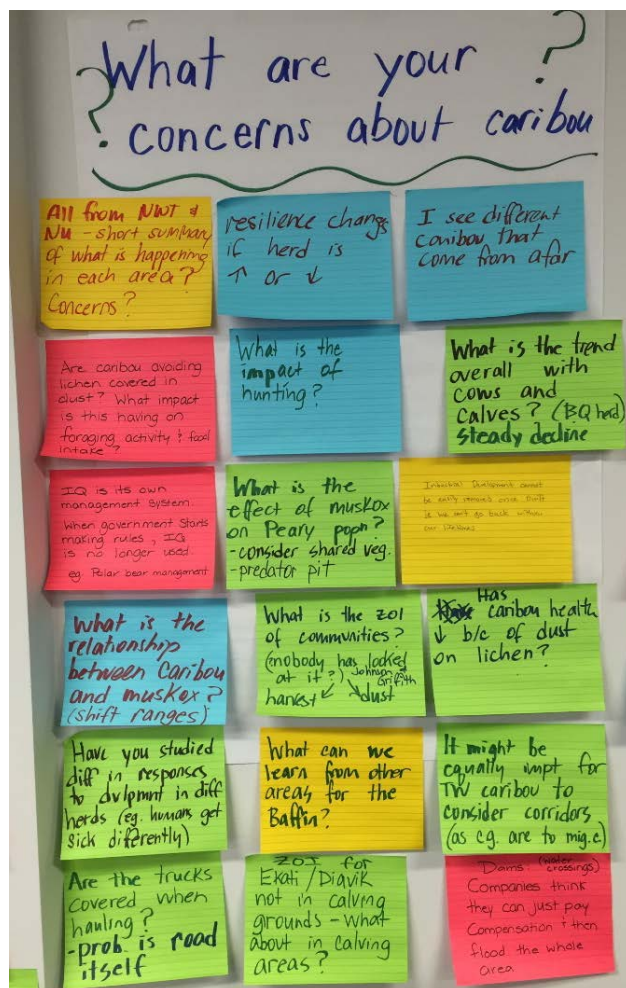 What are your ?
? concerns about caribou
All from NWT &
NU - short summary
of what is happening
in each area?
Concerns?
resilience change
if herd is
↑ or ↓
I see different
caribou that
come from afar
Are caribou avoiding
lichen covered in
dust? What impact
is this having on
foraging activity & food
intake?
What is the
impact of
hunting?
What is the trend
overall with
cows and
calves? (BQ herd)
steady decline
IQ is its own
management system.
When government starts
making rules, IQ
is no longer used.
eg Polar bear management
What is the
effect of muskox
on Peary popn?
-consider shared veg.
-predator pit
Industrial Development cannot
be entirely removed once built
ie we can't go back within
our lifetimes
What is the
relationship
between Caribou
and muskox?
(shift ranges)
What is the ZOI
of communities?
(nobody has looked
at it?) Johnson Griffith
harvest ↙ ↘ dust
Has
caribou health
↓ b/c of dust
on lichen?
Have you studied
diff in responses
to dvlpmnt in diff
herds (eg. humans get
sick differently)
What can we
learn from other
areas for the
Baffin?
It might be
equally impt for
TW caribou to
consider corridors
(as c.g. are to mig.c)
Are the trucks
covered when
hauling?
-prob is road
itself
ZOI for
Ekati/Diavik
not in calving
grounds - What
about in calving
areas?
Dams (water
crossings)
Companies think
they can just pay
Compensation & then
flood the whole
area